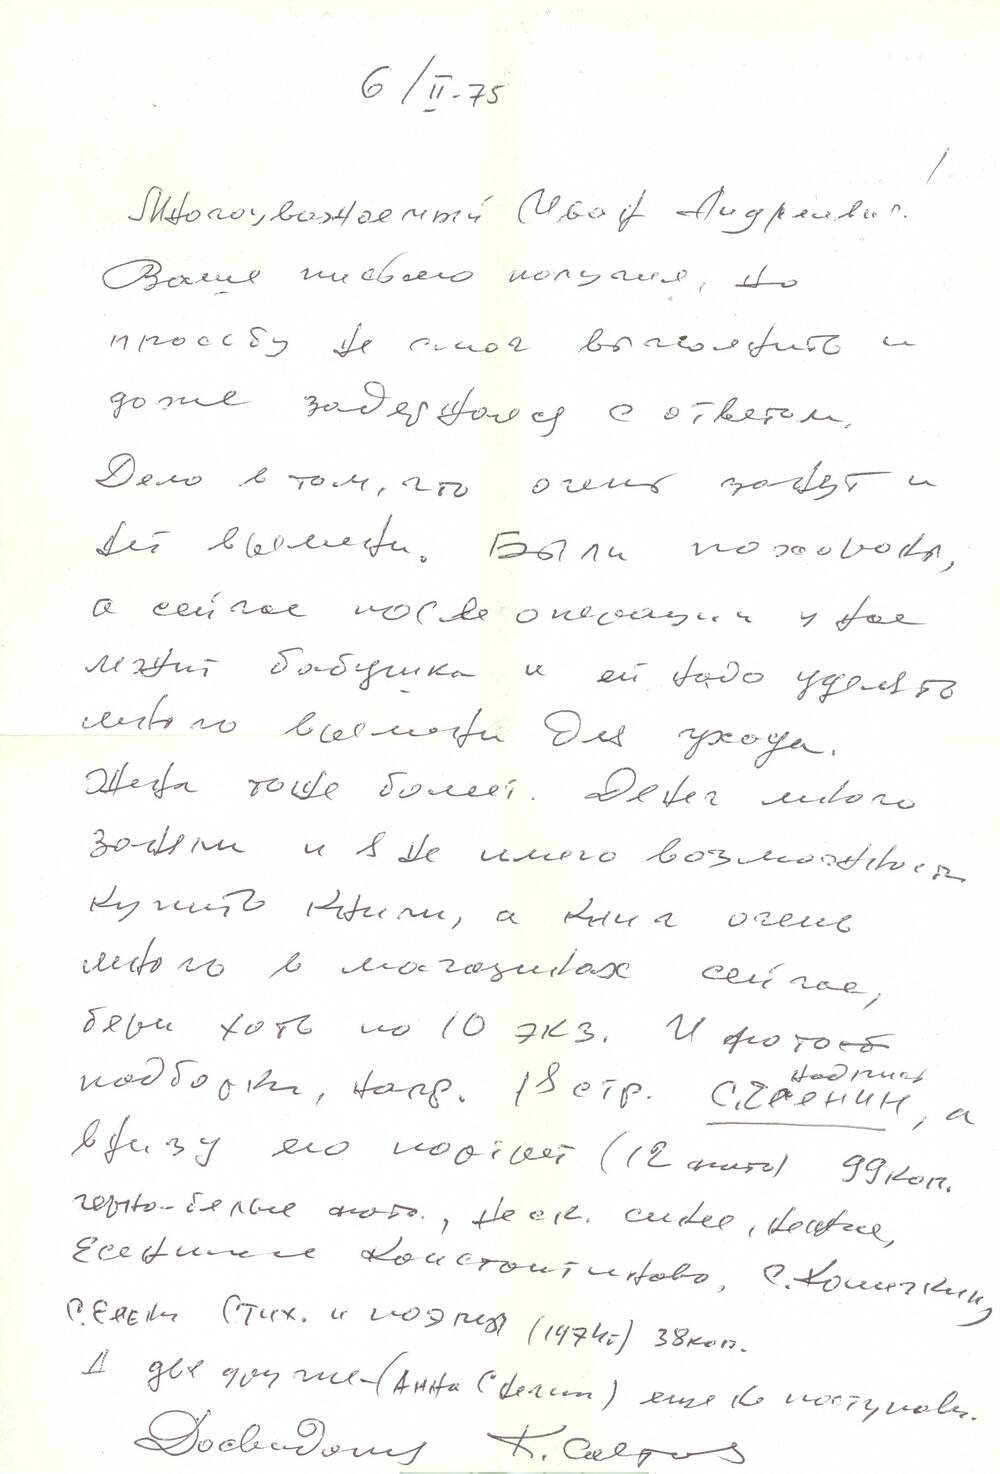 6/II-75
1
Многоуважаемый Иван Андреевич.
Ваше письмо получил, но
просьбу не смог выполнить и
даже задержался с ответом.
Дело в том, что очень занят и
нет времени. Были похороны,
а сейчас после операции у нас
лежит бабушка и ей надо уделять
много времени для ухода.
Жена тоже болеет. Денег много
заняли и я не имею возможности
купить книги, а книг очень
много в магазинах сейчас,
бери хоть по 10 экз. И фото
подборки, напр. 18 стр. надпись С. Есенин, а
внизу его портрет (12 фото) 99 коп.
черно-белые фото, неск. синие,
Есенинское Константиново, С. Кошечкин,
С. Есенин Стих. и поэмы (1974г) 38 коп.
А две другие (Анна Снегина) еще не поступали.
До свидания К.